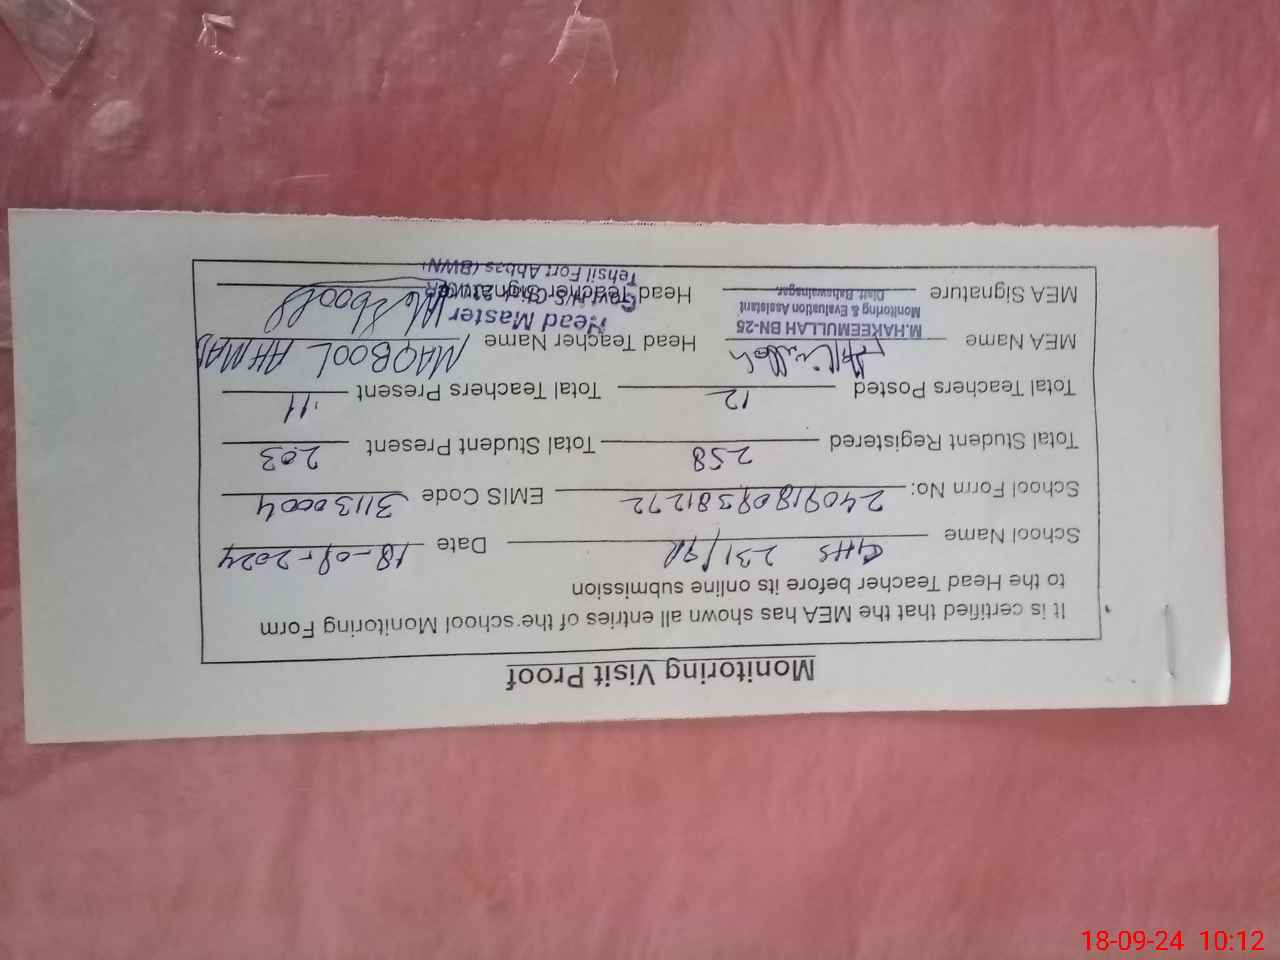 Monitoring Visit Proof
It is certified that the MEA has shown all entries of the school Monitoring Form
to the Head Teacher before its online submission
School Name GHS 231/9R Date 18-09-2024
School Form No: 24091809381272 EMIS Code 31130004
Total Student Registered 258 Total Student Present 203
Total Teachers Posted 12 Total Teachers Present 11
MEA Name Head Teacher Name MAQBOOL AHMAD
M.HAKEEMULLAH BN-25
Monitoring & Evaluation Assistant
Distt. Bahawalnagar
Head Master
MEA Signature Head Teacher Signature
Tehsil Fort Abbas (BWN)
18-09-24 10:12